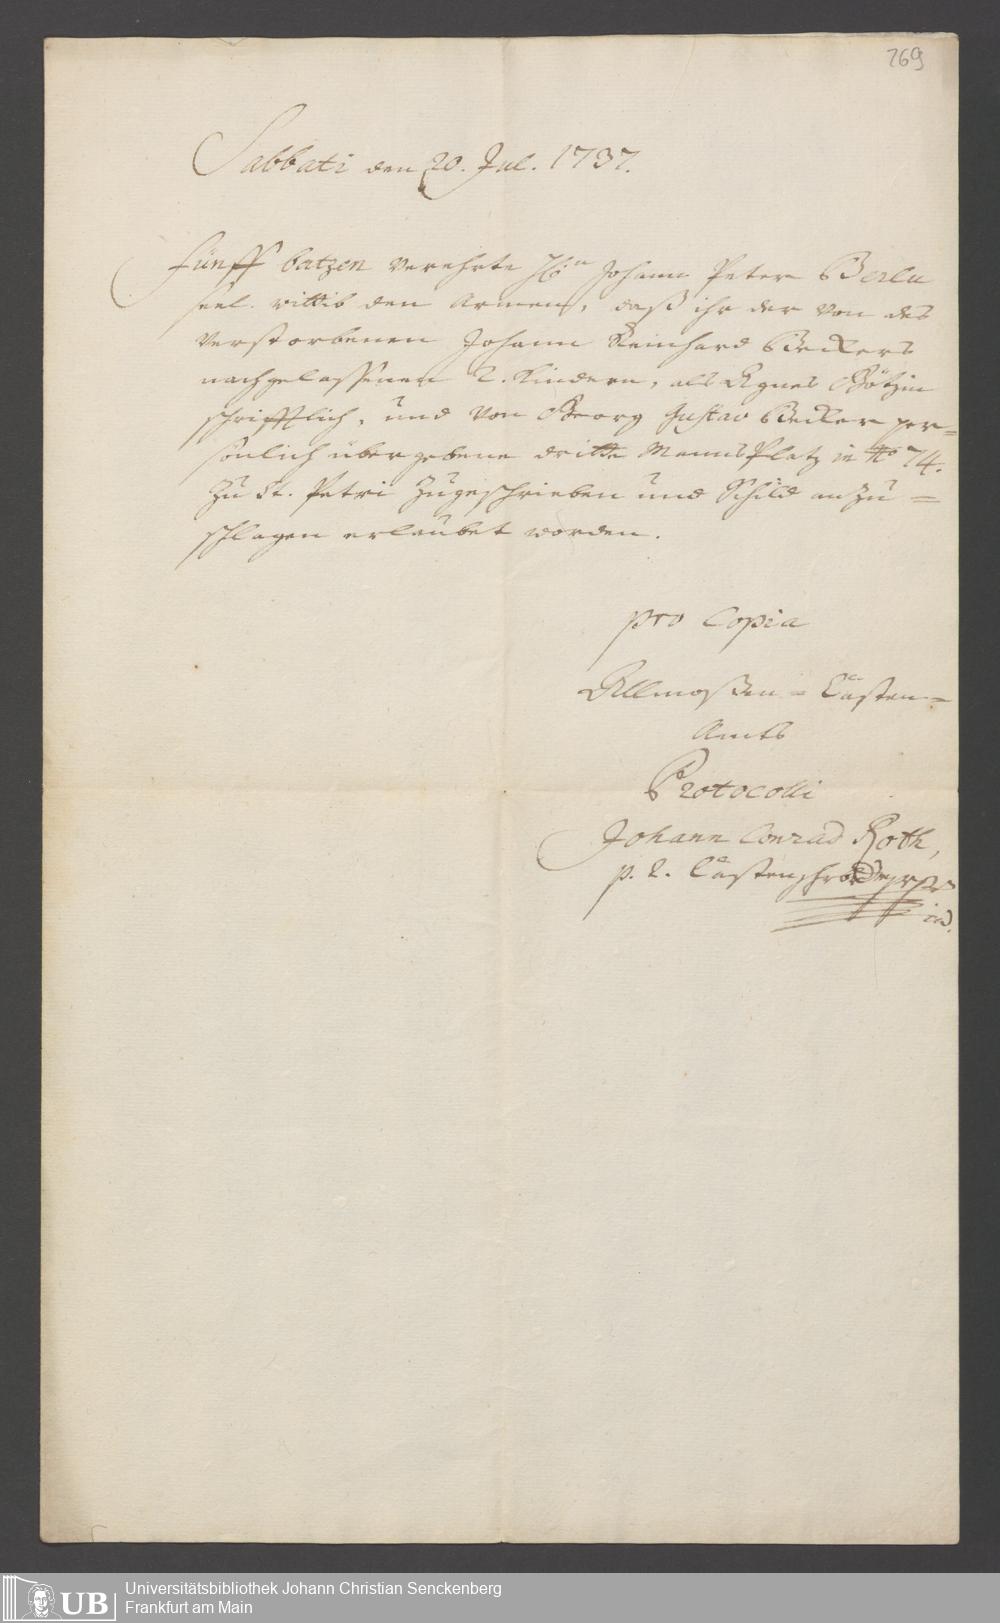 269
Sabbati den 20. Jul. 1737.
Fünff batzen verehrte Johann Peter Berlu
seel. wittib den Armen, daß ihr der von des
verstorbenen Johann Reinhard Beckers
nachgelassenen 2. Kindern, als Agnes Götzin
schrifftlich, und von Georg Gustav Becker per=
sönlich übergebene dritte MannsPlatz in No 74.
zu St. Petri zugeschrieben und Schild anzu=
schlagen erlaubet worden.
pro Copia
Allmoßen=Casten=
Amts
Protocolli
Johann Conrad Roth,
p. t. Castenschreiber
Universitätsbibliothek Johann Christian Senckenberg
UB Frankfurt am Main